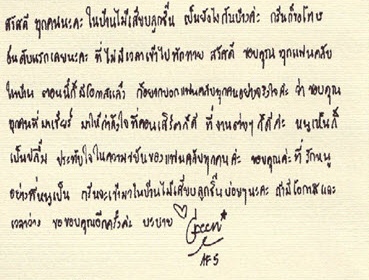 สวัสดี ทุกคนนะคะ ในบ้านไม้เสียบลูกชิ้น เป็นยังไงกันบ้างค่ะ กรีนก็ขอโทษ
อันดับแรกเลยนะคะ ที่ไม่มีเวลาเข้าไปทักทาย สวัสดี ขอบคุณ ทุกแฟนคลับ
ในบ้าน ตอนนี้ก็มีโอกาสแล้ว ก็อยากบอกแฟนคลับทุกคนอย่างจริงใจค่ะ ว่า ขอบคุณ
ทุกคนที่มาเชียร์ มาให้กำลังใจที่คอนเสิร์ตก็ดี ที่งานต่างๆ ก็ดีค่ะ หนูเห็นก็
เป็นปลื้ม ประทับใจในความขยันของแฟนคลับทุกคนค่ะ ขอบคุณค่ะที่รักหนู
อย่างที่หนูเป็น กรีนจะเข้ามาในบ้านไม้เสียบลูกชิ้นบ่อยๆนะคะ ถ้ามีโอกาสและ
เวลาว่าง ขอขอบคุณอีกครั้งค่ะ บะบาย
Green
AF5